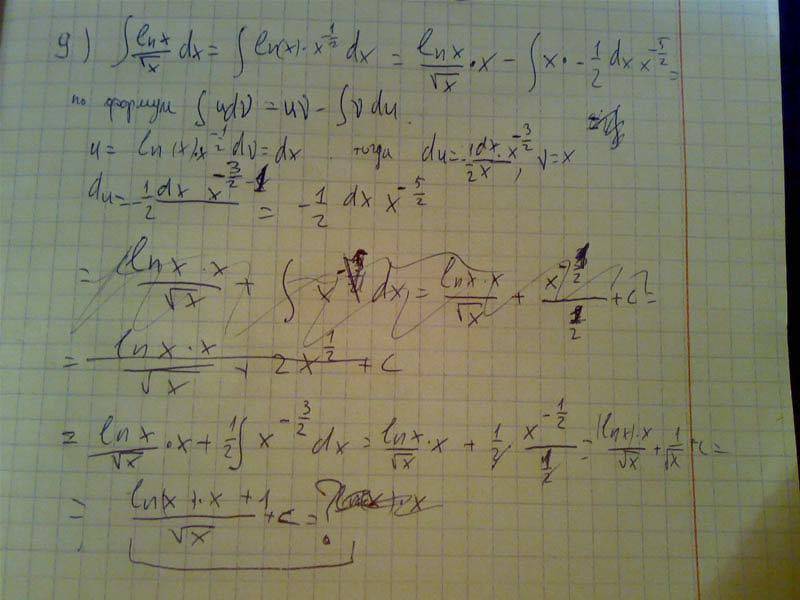 9) ∫ lnx/√x dx = ∫ ln(x)·x^(-1/2) dx = lnx/√x · x - ∫ x · -1/2 dx x^(-5/2) =
по формуле ∫ u dv = uv - ∫ v du.
u = ln(x)·x^(-1/2) dv = dx . тогда du = -1/2 dx/x · x^(-3/2), v = x
du = -1/2 dx x^(-3/2 - 1) = -1/2 dx x^(-5/2)
= lnx·x/√x + ∫ x dx = lnx·x/√x + +c =
= lnx·x/√x + 2x^(1/2) + c
= lnx/√x · x + 1/2 ∫ x^(-3/2) dx = lnx/√x · x + 1/2 · x^(-1/2)/(1/2) = (lnx)·x/√x + 1/√x + c =
= (ln(x)·x + 1)/√x + c = ?